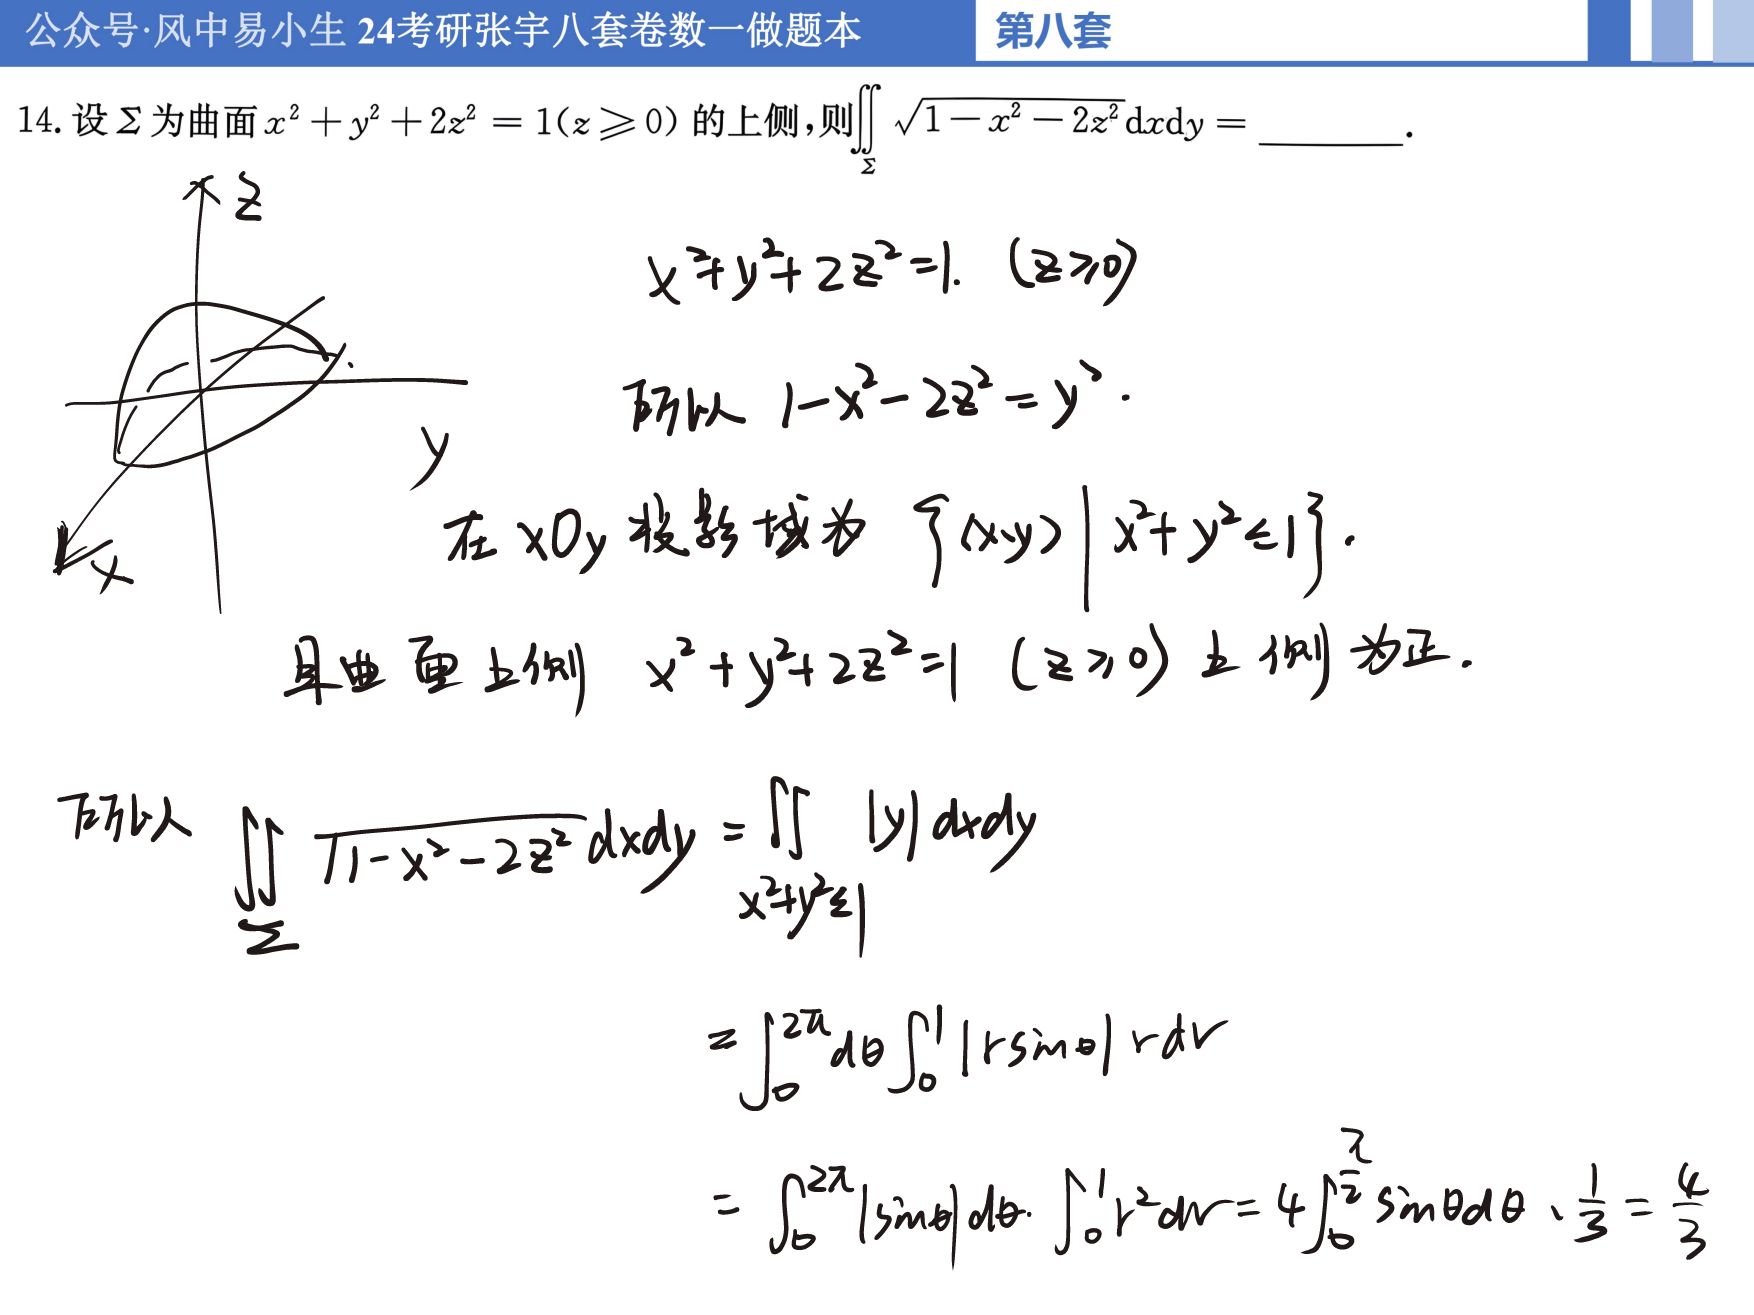 公众号·风中易小生 24考研张宇八套卷数一做题本 第八套
14. 设 Σ 为曲面 x² + y² + 2z² = 1(z ⩾ 0) 的上侧,则∬_Σ √(1 − x² − 2z²) dxdy = ______.
z
y
x
x²+y²+2z²=1. (z≥0)
所以 1-x²-2z²=y².
在 xOy 投影域为 {(x,y) | x²+y²≤1}.
且曲面上侧 x²+y²+2z²=1 (z≥0) 上侧为正.
所以 ∬_Σ √(1-x²-2z²) dxdy = ∬_{x²+y²≤1} |y| dxdy
= ∫₀^{2π} dθ ∫₀¹ |r sinθ| r dr
= ∫₀^{2π} |sinθ| dθ · ∫₀¹ r² dr = 4∫₀^{π/2} sinθ dθ · 1/3 = 4/3